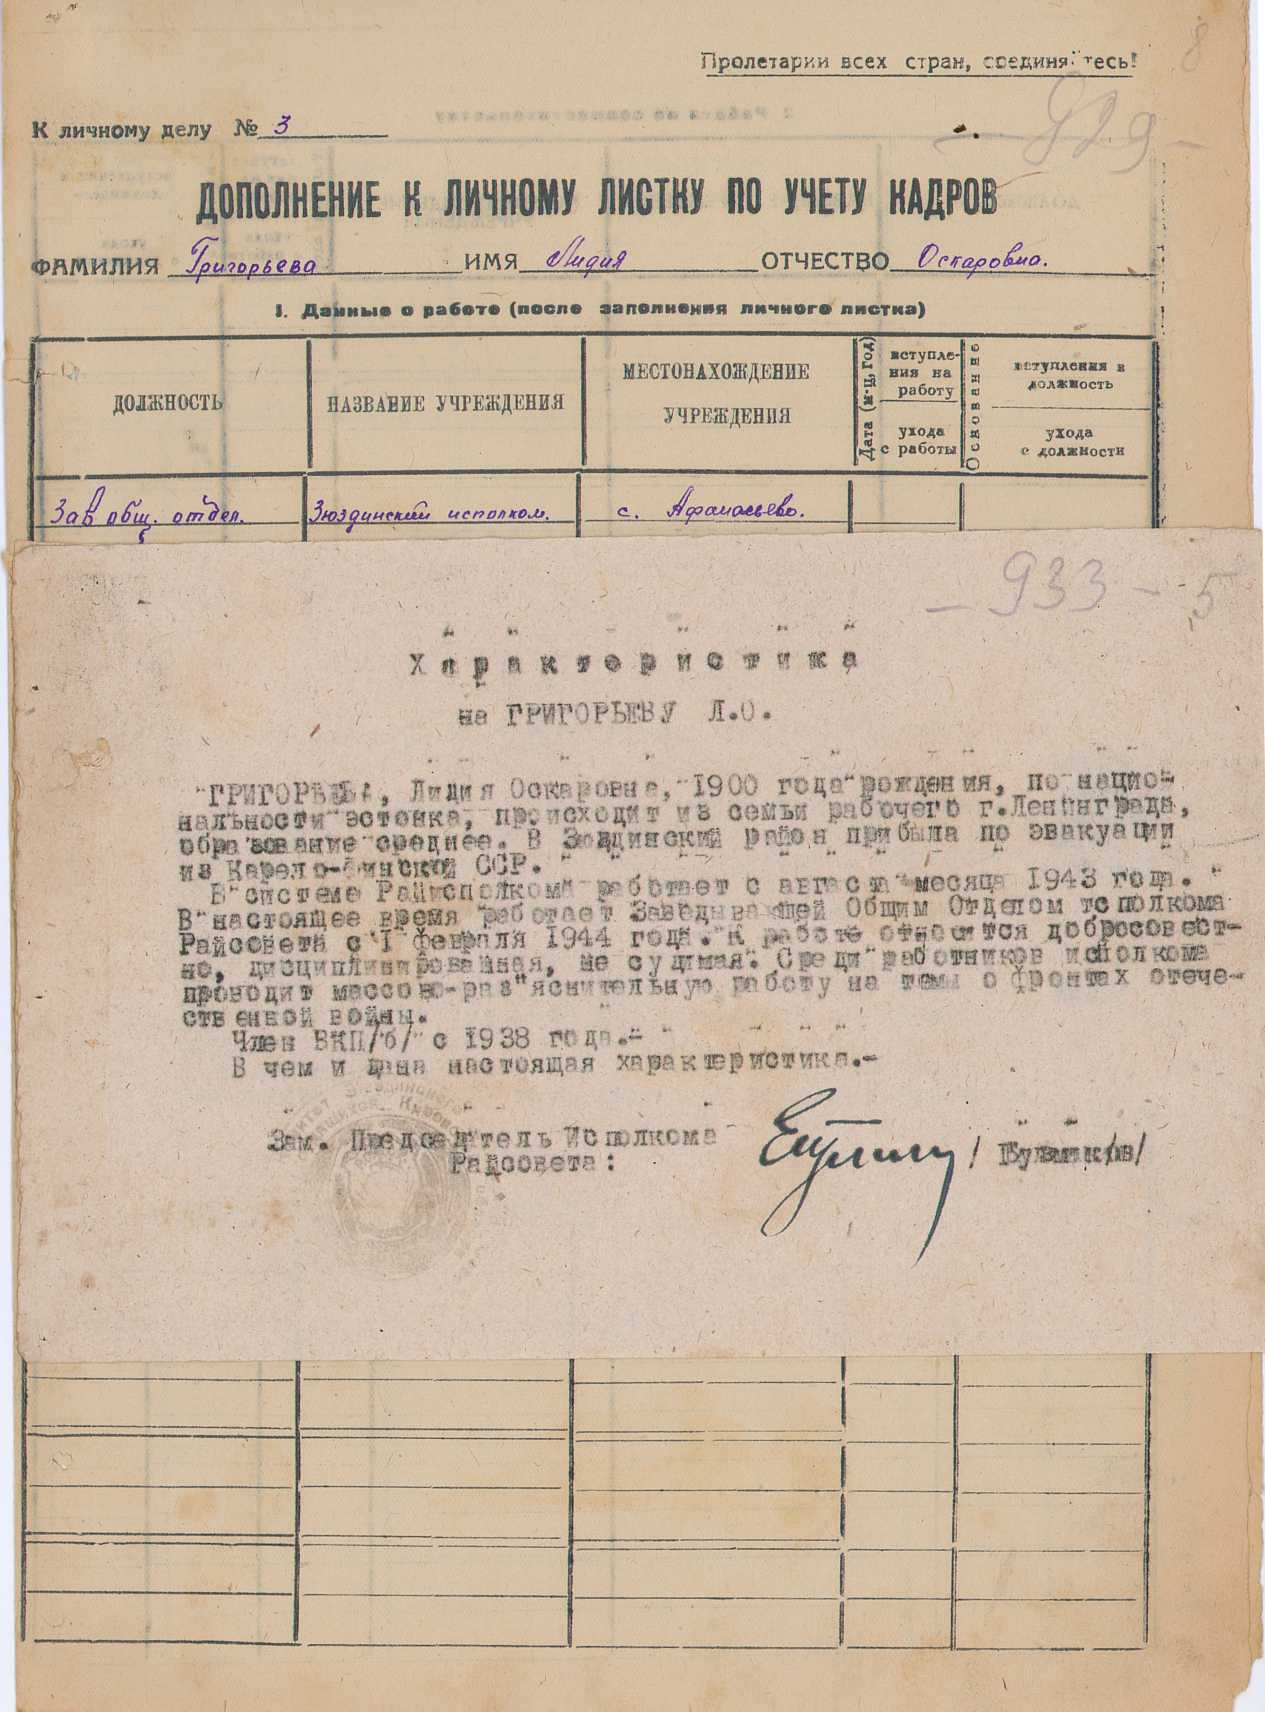 Пролетарии всех стран, соединяйтесь!
8
К личному делу № 3
929
ДОПОЛНЕНИЕ К ЛИЧНОМУ ЛИСТКУ ПО УЧЕТУ КАДРОВ
ФАМИЛИЯ Григорьева ИМЯ Лидия ОТЧЕСТВО Оскаровна.
1. Данные о работе (после заполнения личного листка)
ДОЛЖНОСТЬ
НАЗВАНИЕ УЧРЕЖДЕНИЯ
МЕСТОНАХОЖДЕНИЕ
УЧРЕЖДЕНИЯ
Дата (м-ц, год)
вступле-
ния на
работу
ухода
с работы
Основание
вступления в
должность
ухода
с должности
Зав общ. отдел. Зюздинский исполком. с. Афанасьево.
- 933 - 5
Характеристика
на ГРИГОРЬЕВУ Л.О.
ГРИГОРЬЕВА, Лидия Оскаровна, 1900 года рождения, по нацио-
нальности эстонка, происходит из семьи рабочего г.Ленинграда,
образование среднее. В Зюздинский район прибыла по эвакуации
из Карело-финской ССР.
В системе Райисполкома работает с августа месяца 1943 года.
В настоящее время работает Заведывающей Общим Отделом исполкома
Райсовета с 1 февраля 1944 года. К работе относится добросовест-
но, дисциплинированная, не судимая. Среди работников исполкома
проводит массово-раз"яснительную работу на темы о фронтах отече-
ственной войны.
Член ВКП/б/ с 1938 года.-
В чем и дана настоящая характеристика.-
Зам. Председатель Исполкома
Райсовета: